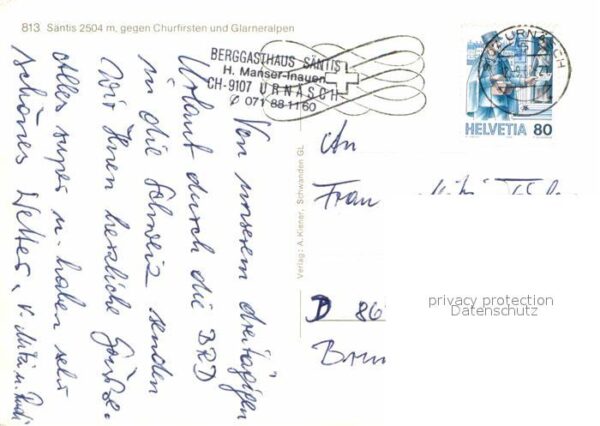 813 Säntis 2504 m, gegen Churfirsten und Glarneralpen
BERGGASTHAUS SÄNTIS
H. Manser-Inauen
CH-9107 URNÄSCH
✆ 071 88 11 60
URNÄSCH
HELVETIA 80
Von unserem dreitägigen
Urlaub durch die BRD
in die Schweiz senden
wir Ihnen herzliche Grüße.
Alles super u. haben sehr
schönes Wetter.
Verlag: A. Kiener, Schwanden GL
An
Frau
D 86
privacy protection
Datenschutz